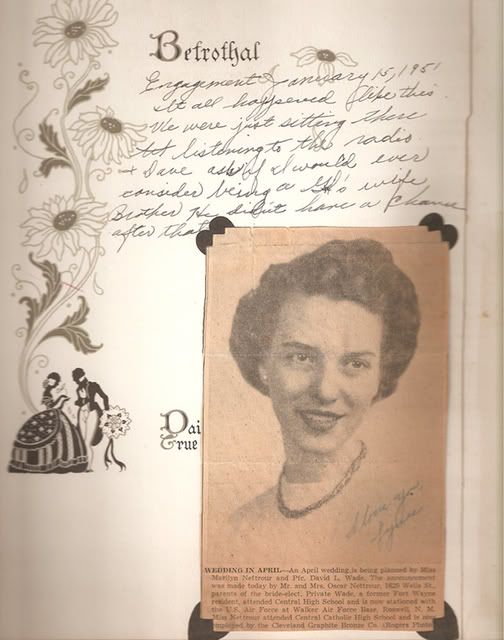 Betrothal
Engagement January 15, 1951
It all happened like this.
We were just sitting there
listening to the radio
+ Dave ask if I would ever
consider being a GI's wife
Brother He didn't have a chance
after that
Dai
True
I love you,
WEDDING IN APRIL—An April wedding is being planned by Miss
Marilyn Nettrour and Pfc. David L. Wade. The announcement
was made today by Mr. and Mrs. Oscar Nettrour, 1625 Wells St.,
parents of the bride-elect. Private Wade, a former Fort Wayne
resident, attended Central High School and is now stationed with
the U.S. Air Force at Walker Air Force Base, Roswell, N. M.
Miss Nettrour attended Central Catholic High School and is now
employed by the Cleveland Graphite Bronze Co. (Rogers Photo